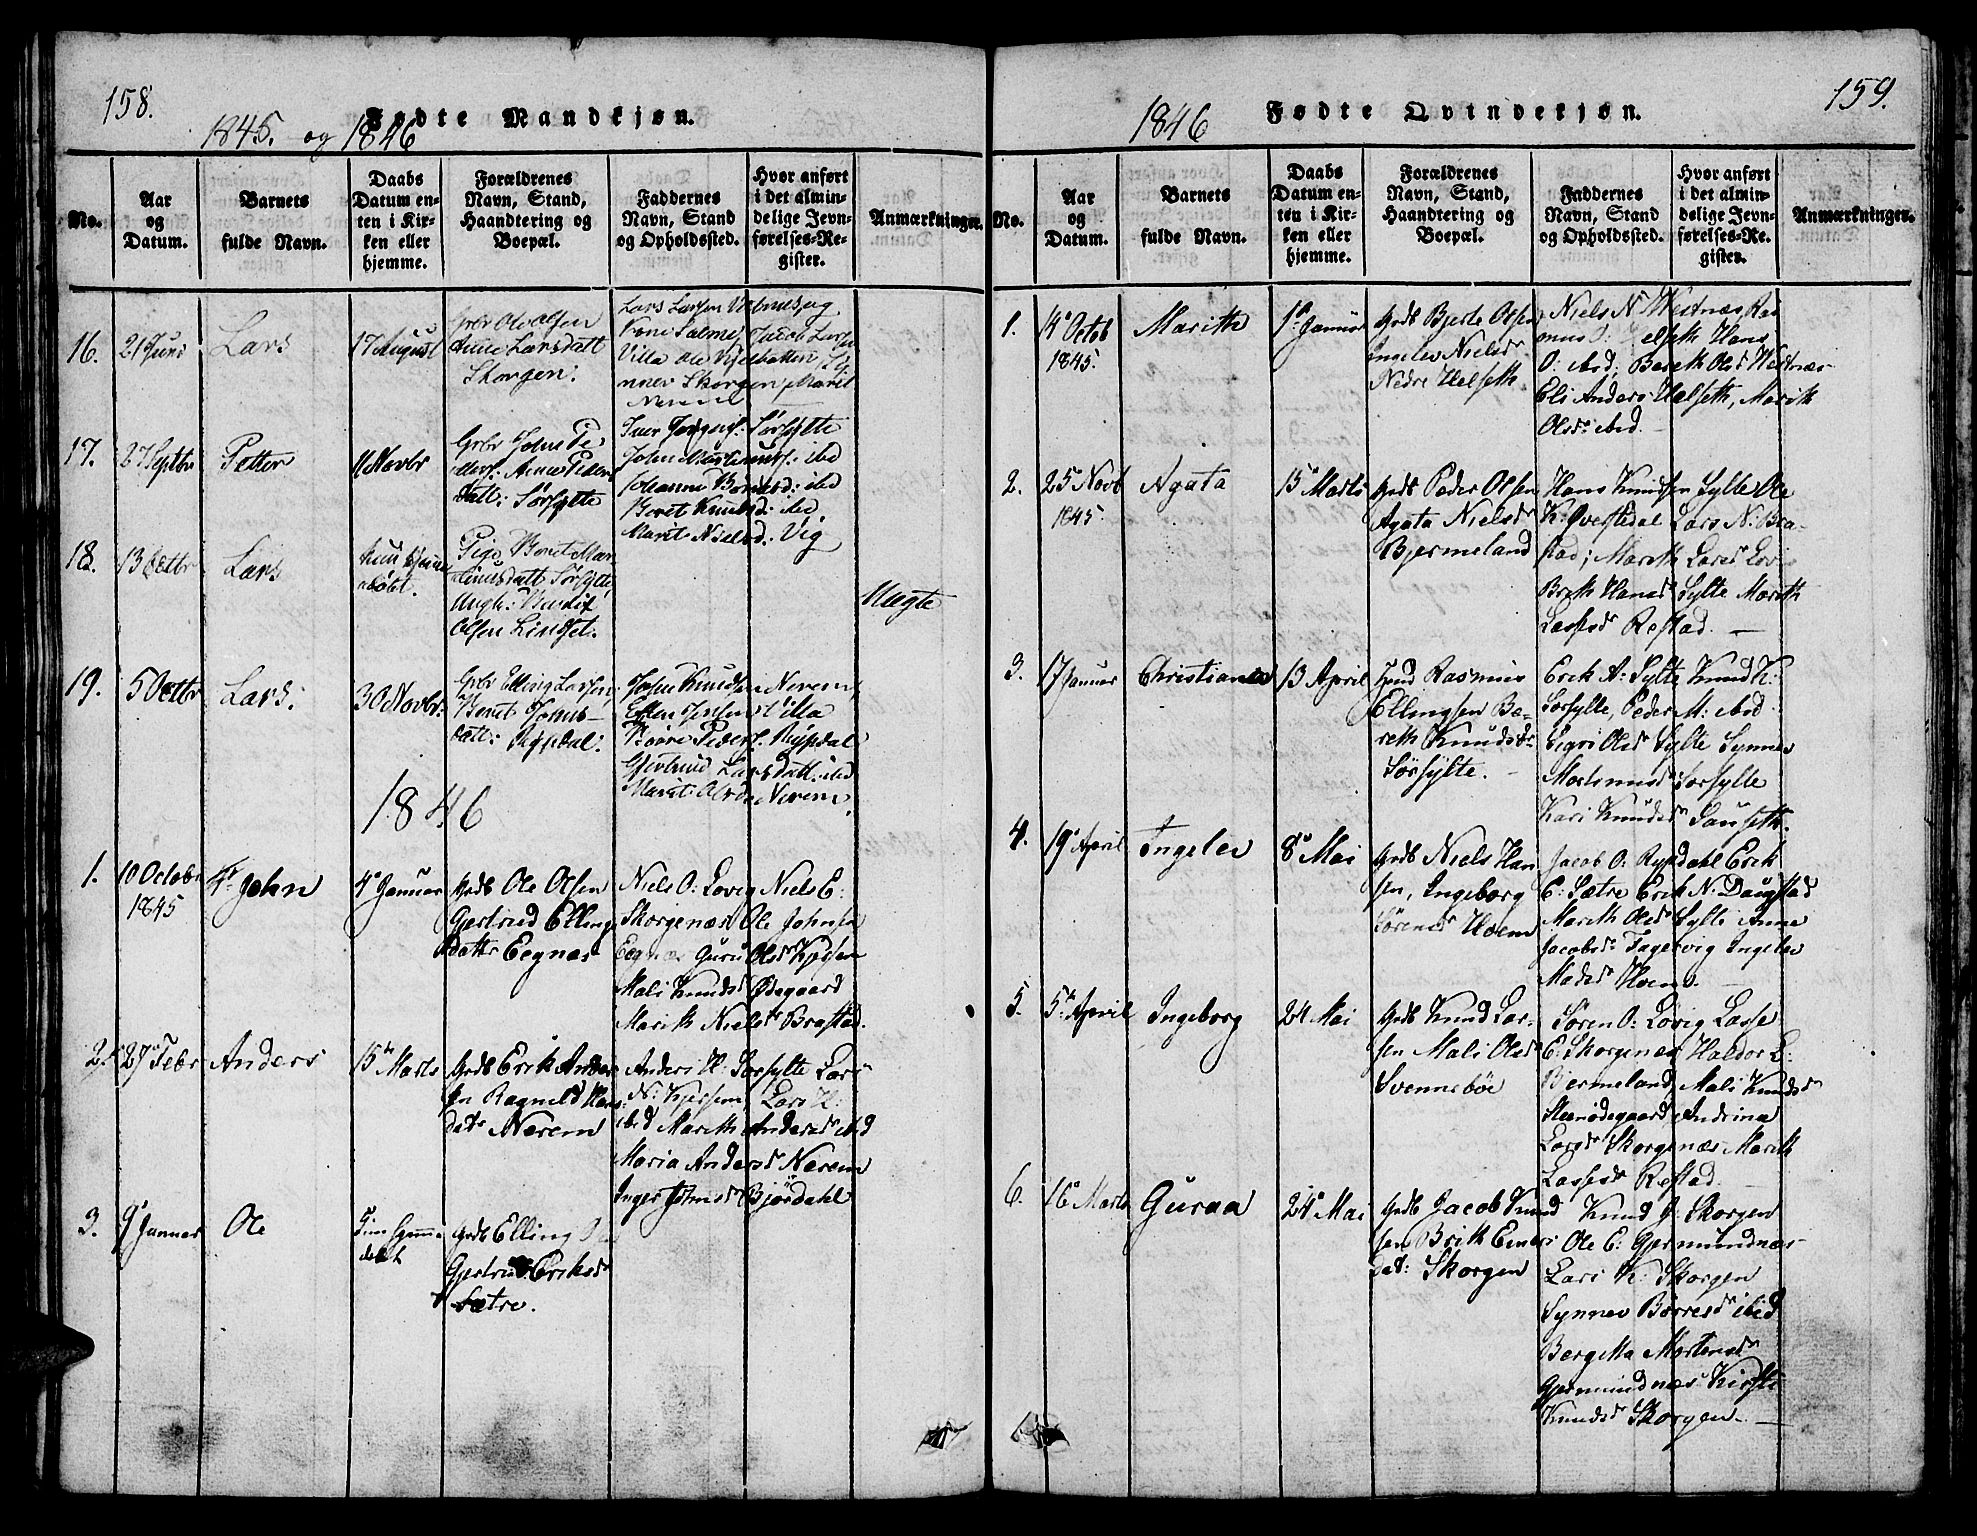 158.
Fødte Mandkjøn.
1845. og 1846
No.
Aar og Datum.
Barnets fulde Navn.
Daabs Datum enten i Kirken eller hjemme.
Forældrenes Navn, Stand, Haandtering og Boepæl.
Faddernes Navn, Stand og Opholdssted.
Hvor anført i det almindelige Jevnførelses-Register.
Anmærkninger.
16.
21 Juni
Lars
17 August
Grbr Ole Olsen
Anne Larsdatt
Skorgen:
Lars Larsen
Kone Jacob Larsen
Villa Ole
Skorgen Marit
Nerem
17.
27 Septbr
Petter
11 Novbr
Grbr John Pe-
ders: Anne Peders
datt: Sørsylte
Iver Sørsylte
John Martinus: ibd
Johanne ibd
Beret Knudsd: ibd
Marit Nielsd: Vig
18.
13 Octbr
Lars
døbt.
Pige Beret Mar-
tinusdatt Sørsylte
Ungk: Bendix
Olsen Lindset.
Uægte
19.
5 Octbr
Lars:
30 Novbr:
Grbr Elling Larsen,
Beret Johns-
datt: Rypdal:
John Knudsen Nerem,
Esten Jensen Villa
Peders: Rypdal
Gjertrud Larsdatt: ibd
Marit Nerem,
1846
1.
10 Octobr
1845
John
4 Januar
Grdb Ole Olsen
Gjertrud Elling
Datter Eegnæs
Niels O: Lovig Niels E:
Skorgenæs Ole Johnsen
Eegnæs Guru Olsd Kjersem
Mali Knudsd Ødegaard
Marith Nielsd Brastad.
2.
27 Febr
Anders
15de Marts
Grdb Erik Ander
sen Ragnild Hans
datr Nerem
Anders H: Sørsylte Lars
N: Kjersem, Lars H:
ibid Marith Andersdr ibid
Maria Andersd Nerem
Inger Johnsd Bjørdahl
3.
9 Januar
Ole
Hjemme
døbt
Grdb Elling
Gjertrud Eriksd
Sætre.
159.
Fødte Qvindekjøn.
1846
No.
Aar og Datum.
Barnets fulde Navn.
Daabs Datum enten i Kirken eller hjemme.
Forældrenes Navn, Stand, Haandtering og Boepæl.
Faddernes Navn, Stand og Opholdssted.
Hvor anført i det almindelige Jevnførelses-Register.
Anmærkninger.
1.
14 Octob
1845.
Marith
1 Januar
Grdb Bjerte Olsen
Ingelev Nielsdr
Nedre Helseth
Niels N Westnæs Ras
mus O: Helseth Hans
O. ibid, Bereth Olsd Westnæs
Eli Anders Helseth, Marith
Olsdr ibid.
2.
25 Novb
1845.
Agata
15 Marts
Grdb Peder Olsen
Agata Nielsdr
Bjermeland
Hans Knudsen Sylte Ole
K: Øvstedal Lars N: Bra-
stad; Marith Larsd Lovi
Brith Hansd Sylte Marith
Lassesdr Restad.
3.
17 Januar
Christiane
13 April
Rasmus
Ellingsen Be-
reth Knudsdr
Sørsylte.
Erik A: Sylte Knud K:
Sørsylte, Peder M: ibid
Sigri Olsd Sylte Synnev
Martinusd Sørsylte
Kari Knudsdr Sauseth.
4.
19 April
Ingelev
8 Mai
Grdb Niels Han
sen, Ingeborg
Sørensdr Hoem
Jacob O. Rypdahl Erik
E: Sætre Erik N: Daugstad
Marith Olsd Sylte Anne
Jacobsdr Fagervig Ingelev
Madsdr Hoem.
5.
5 April
Ingeborg
24 Mai
Grdb Knud Lar-
sen Mali Olsdr
Svennebøe
Søren O: Lovig Lasse
E: Skorgenæs Haldor L:
Bermeland, Mali Knudsdr
Ødegaard Andrina
Larsdr Skorgenæs Marith
Lassesdr Restad.
6.
16 Marts
Guraa
24 Mai
Grdb Jacob Knud
sen Brith Eners
dat: Skorgen
Knud J: Skorgen
Ole E: Gjermundnæs
Lars K: Skorgen
Synnev Børresdr ibid
Bergitta Mortensdr
Gjermundnæs Kirsti
Knudsdr Skorgen.